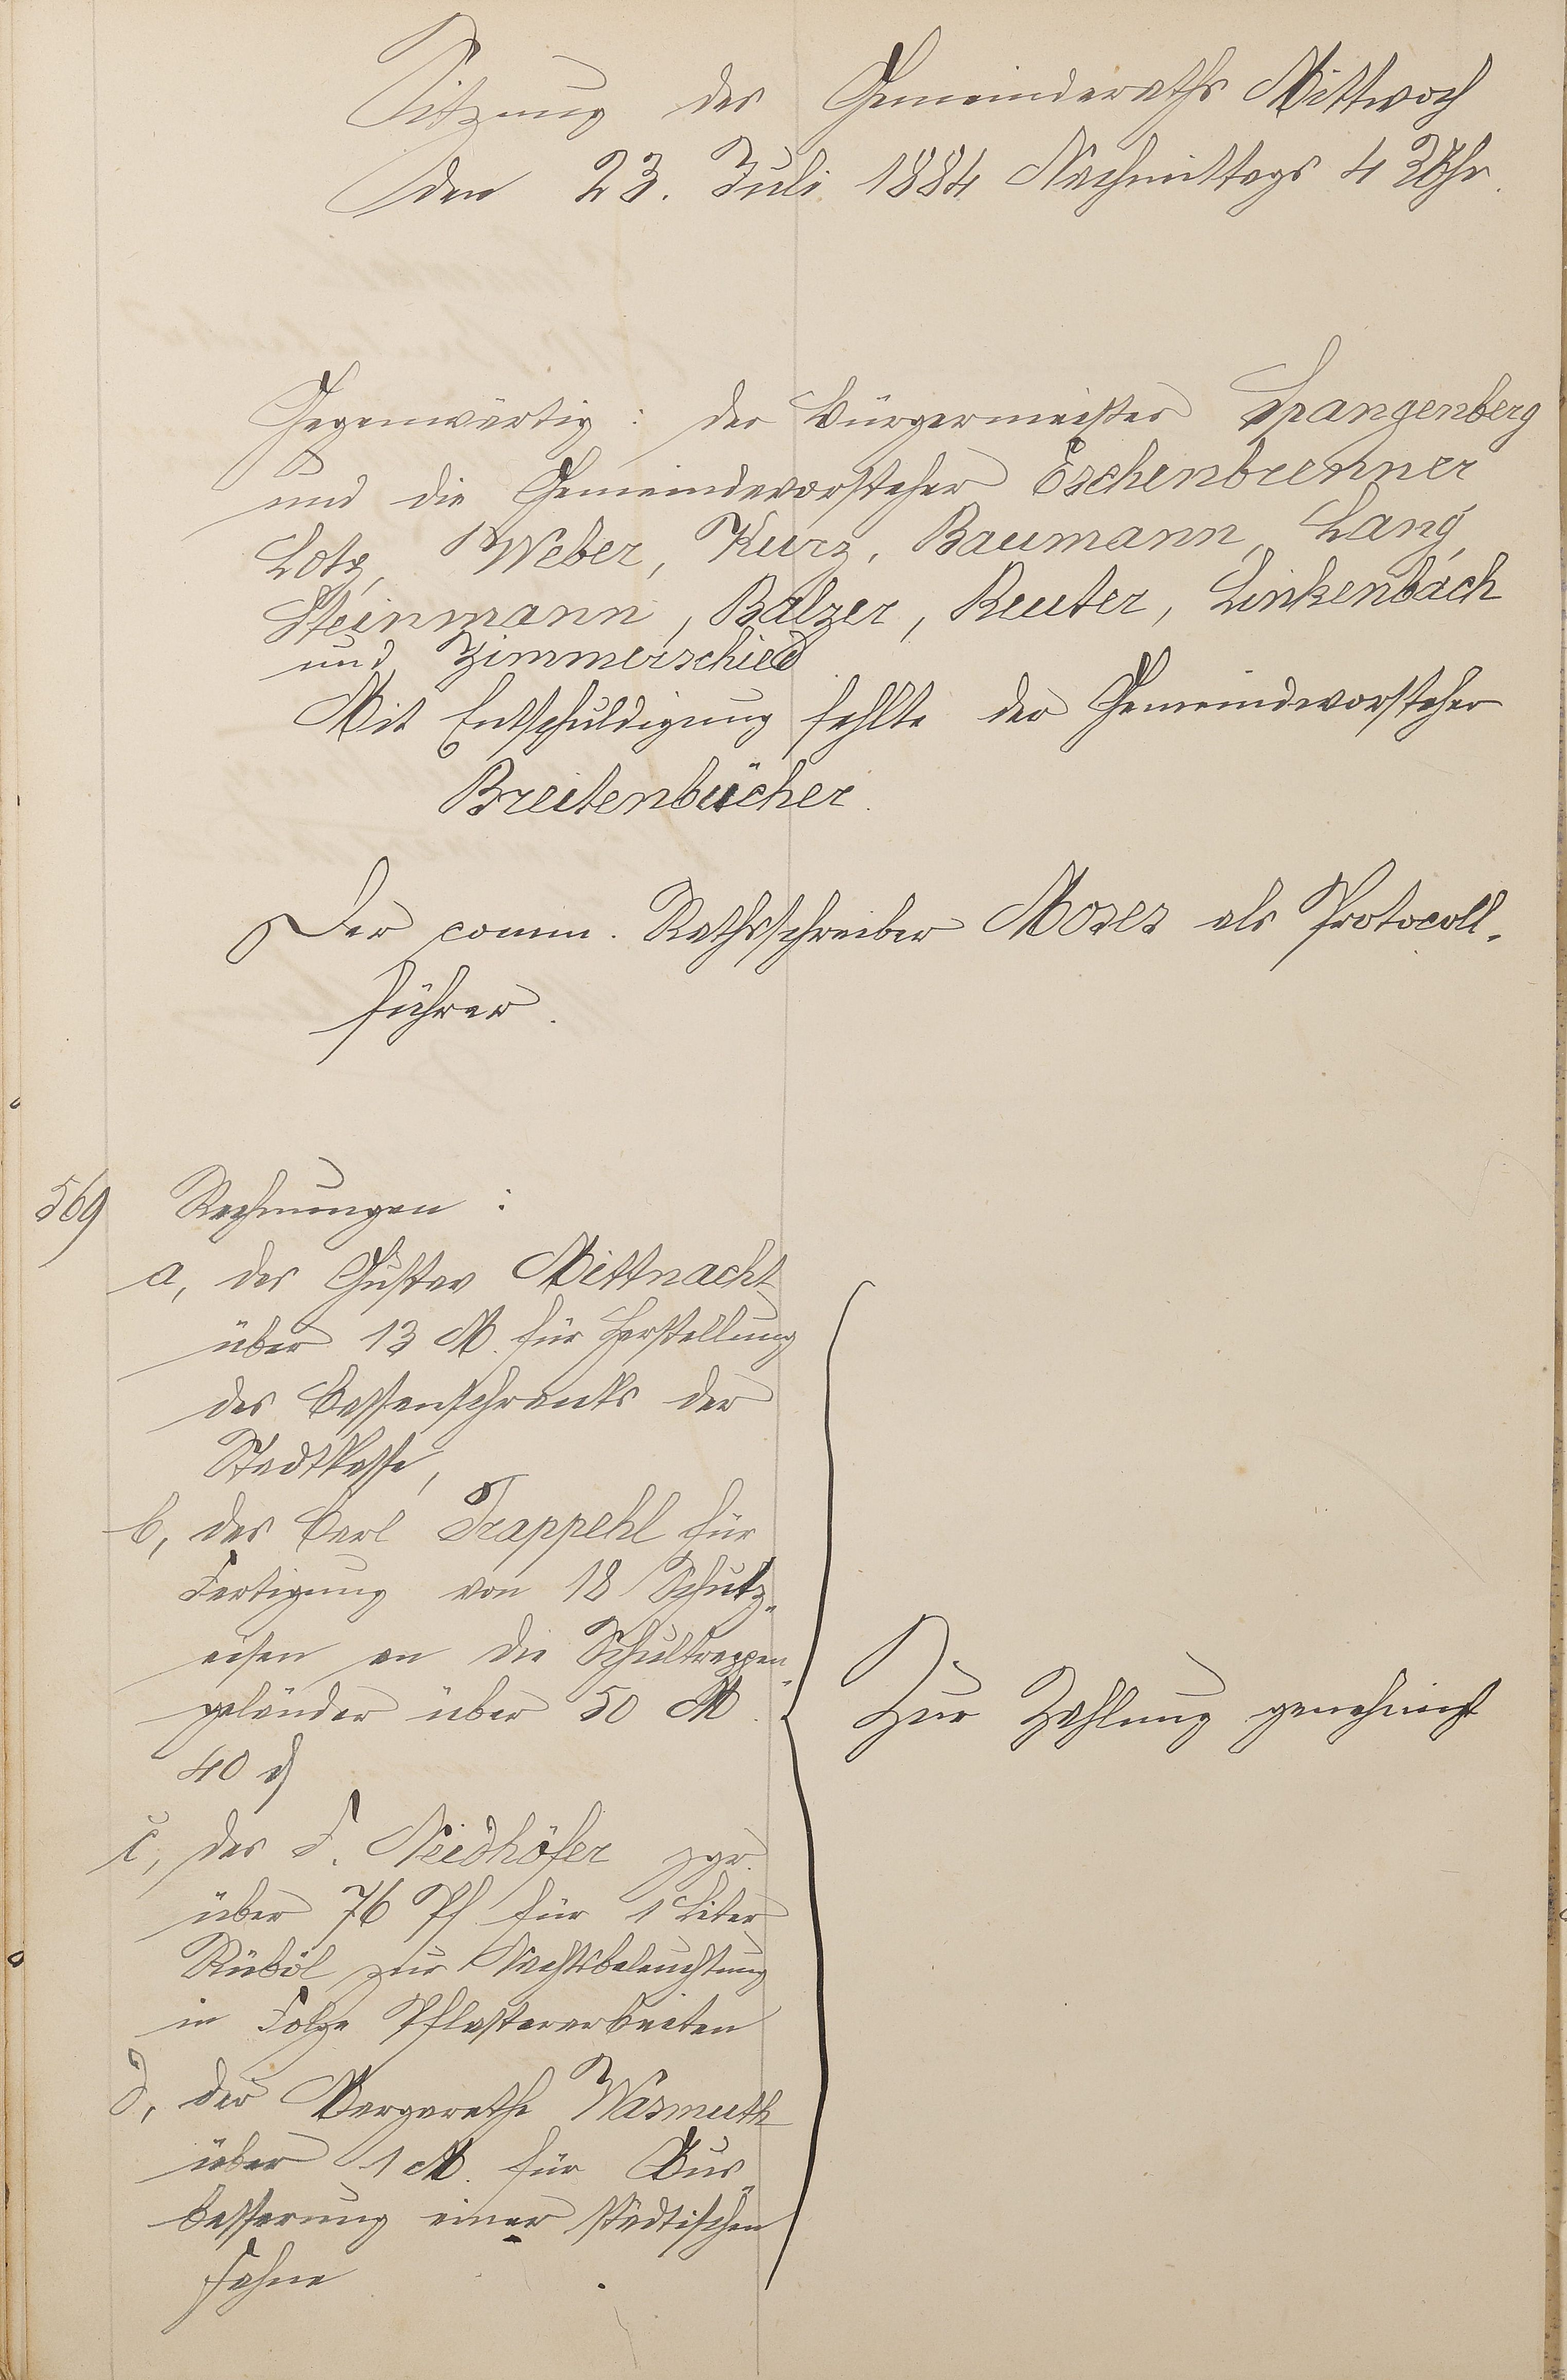 Sitzung des Gemeinderaths Mittwoch
den 23. Juli 1884 Nachmittags 4 Uhr.
Gegenwärtig: der Bürgermeister Spangenberg
und die Gemeindevorsteher Eschenbrenner
Lotz, Weber, Kurz, Baumann, Lang,
Steinmann, Balzer, Reuter, Linkenbach
und Zimmerschied
Mit Entschuldigung fehlte der Gemeindevorsteher
Breitenbücher.
Der comm. Rathsschreiber Moses als Protocoll-
führer.
569 Rechnungen:
a, des Gustav Mittnacht
über 13 M. für Herstellung
des Cassenschranks der
Stadtkasse,
b, des Carl Trappehl für
Fertigung von 18 Schutz-
eisen an die Schultreppen-
geländer über 50 M.
40 ₰
c, des F. Neidhöfer
über 76 Pf für 1 Liter
Rüböl zur Nachtsbeleuchtung
in Folge Pflasterarbeiten
d, der Margarethe Wasmuth
über 1 M. für Aus-
besserung einer städtischen
Fahne
Zur Zahlung genehmigt